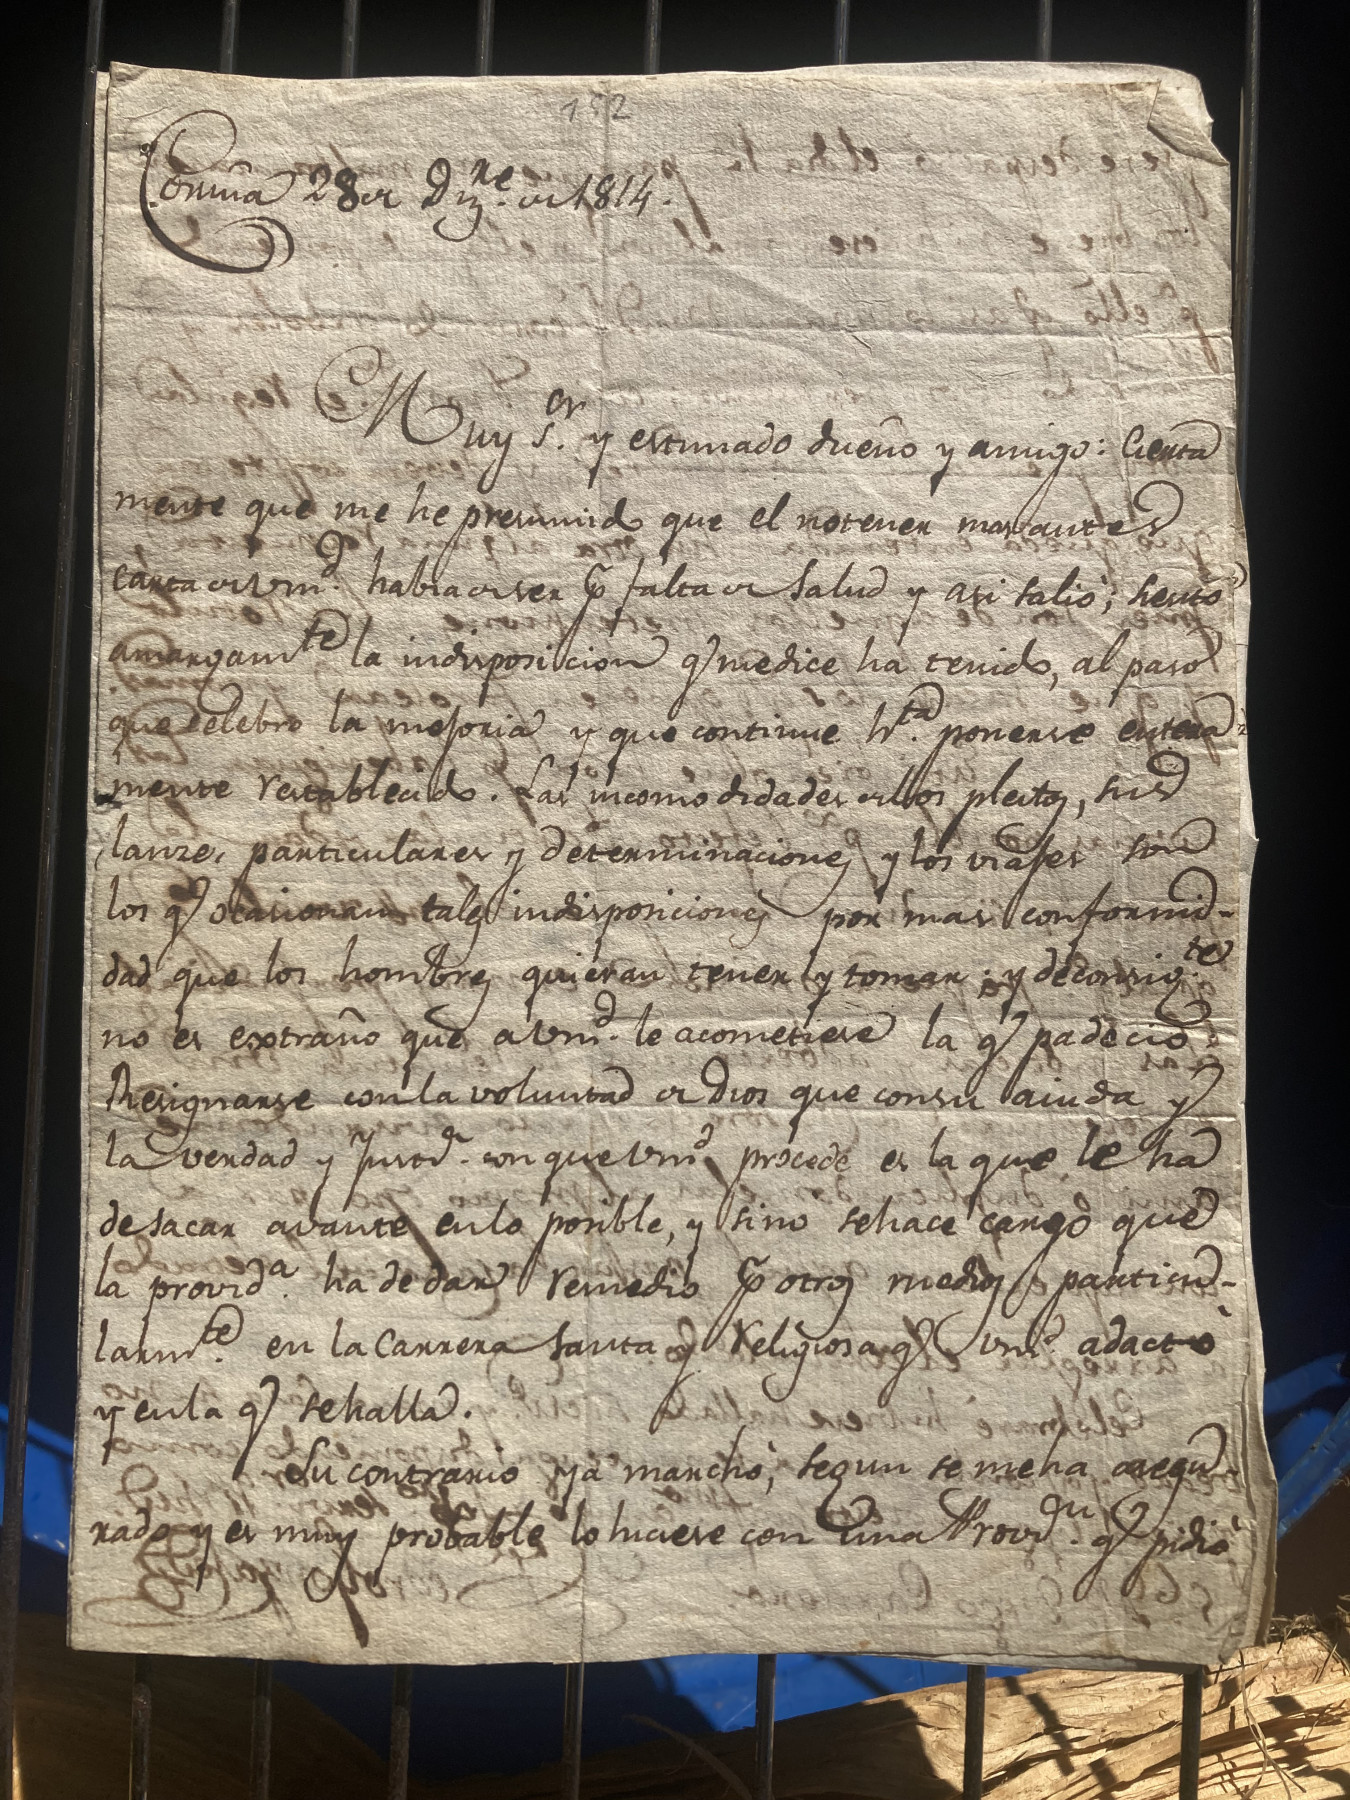 152
Coruña 28 de Diz.re de 1814.
Muy S.or y estimado dueño y amigo: Cierta
mente que me he presumido que el no tener mas antes
carta de Vm.d habia de ser p falta de salud y asi salió; siento
amargam.te la indisposicion q me dice ha tenido, al paso
que celebro la mejoria y que continue h.ta ponerse entera
mente restablecido. Las incomodidades de los pleitos, sus
lanzes particulares y determinaciones y los viajes son
los q ocasionan tales indisposiciones por mas conformid-
dad que los hombres quieran tener y tomar; y de consig.te
no es extraño que a Vm.d le acometiese la q padeció
Resignarse con la voluntad de Dios que con su aiuda y
la verdad y Justa. con que Vm.d procede es la que le ha
de sacar avante en lo posible, y sino se hace cargo que
la provid.a ha de dar remedio p otros medios particu-
larm.te en la Carrera Santa y religiosa q Vm.d adactó
y en la q se halla.
Su contrario ya marchó, segun se me ha asegu
rado y es muy probable lo hiciese con una Prov.on q pidió